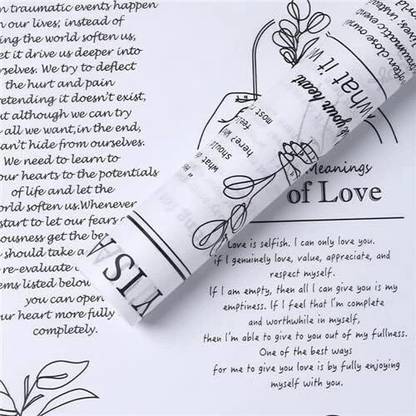 n traumatic events happen
n our lives; instead of
ing the world soften us,
et it drive us deeper into
rselves. We try to deflect
the hurt and pain
retending it doesn't exist,
ut although we can try
all we want,in the end,
an't hide from ourselves.
We need to learn to
our hearts to the potentials
of life and let the
orld soften us.Whenever
start to let our fears
ousness get the be
should take a
re-evaluate
ems listed below
you can open
ur heart more fully
completely.
What it w
your heart
what
shou
here? W
feel
most
YISA
Meanings
of Love
Love is selfish. I can only love you.
if I genuinely love, value, appreciate, and
respect myself.
If I am empty, then all I can give you is my
emptiness. If I feel that I'm complete
and worthwhile in myself,
then I'm able to give to you out of my fullness.
One of the best ways
for me to give you love is by fully enjoying
myself with you.